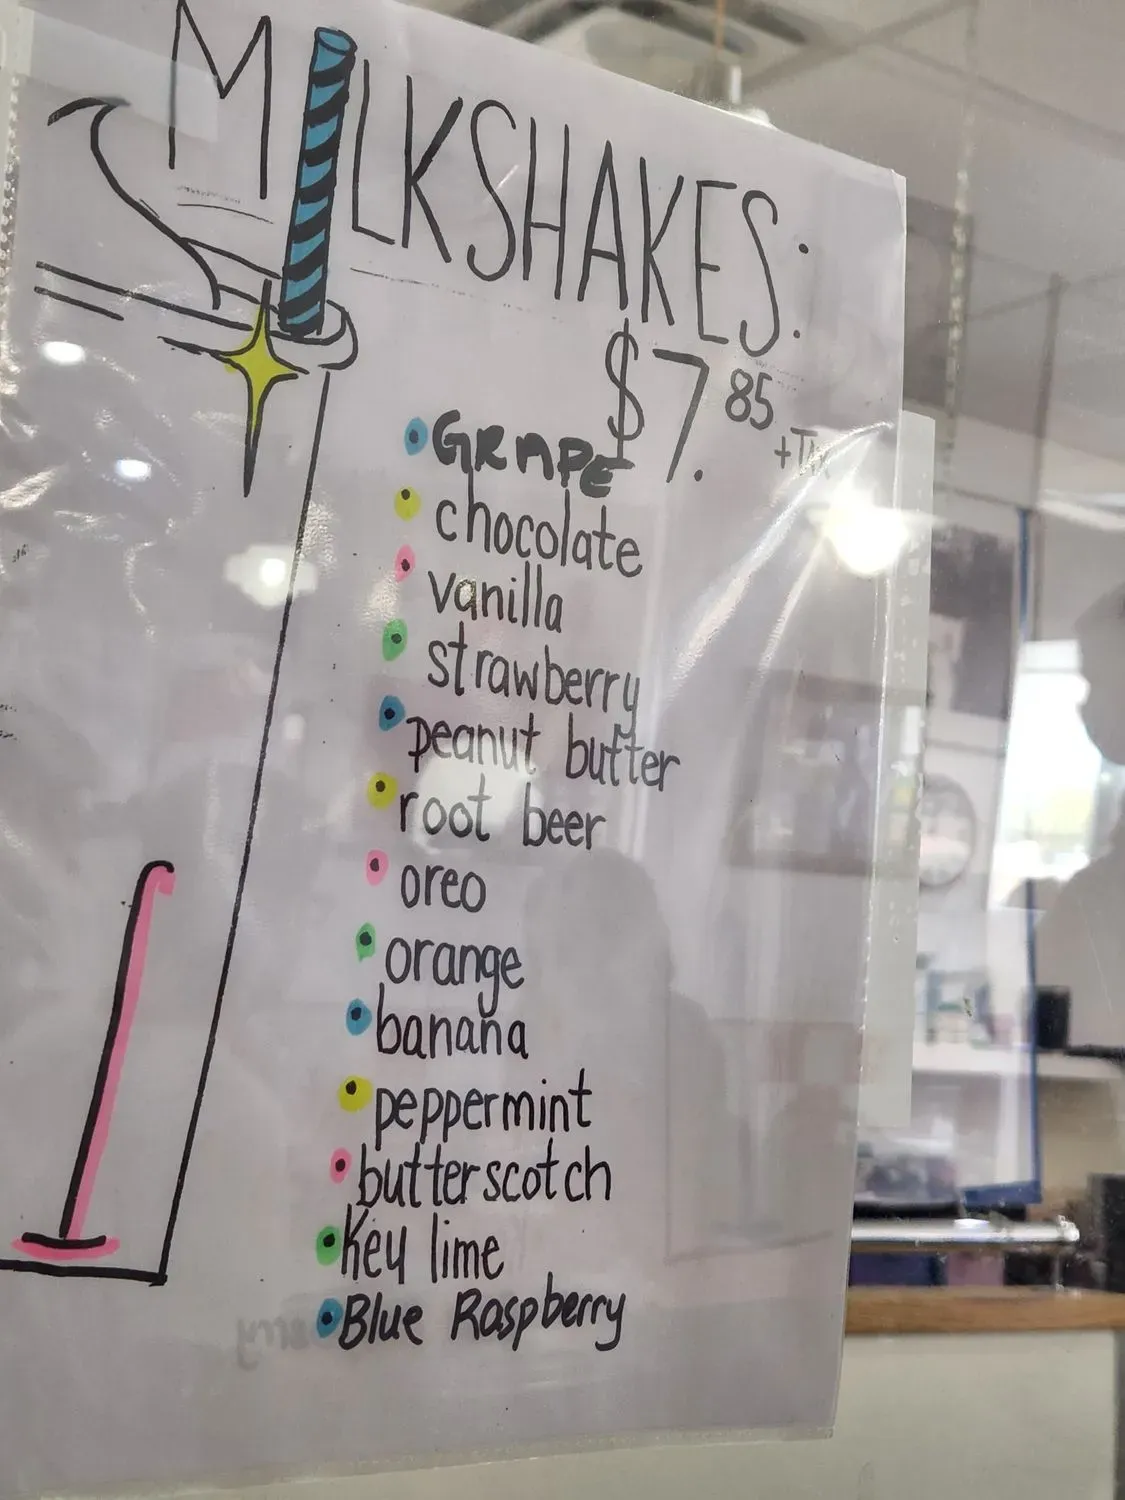 MILKSHAKES:
$7.85
+Tax
GRAPE
chocolate
vanilla
strawberry
peanut butter
root beer
oreo
orange
banana
peppermint
butterscotch
Key lime
Blue Raspberry